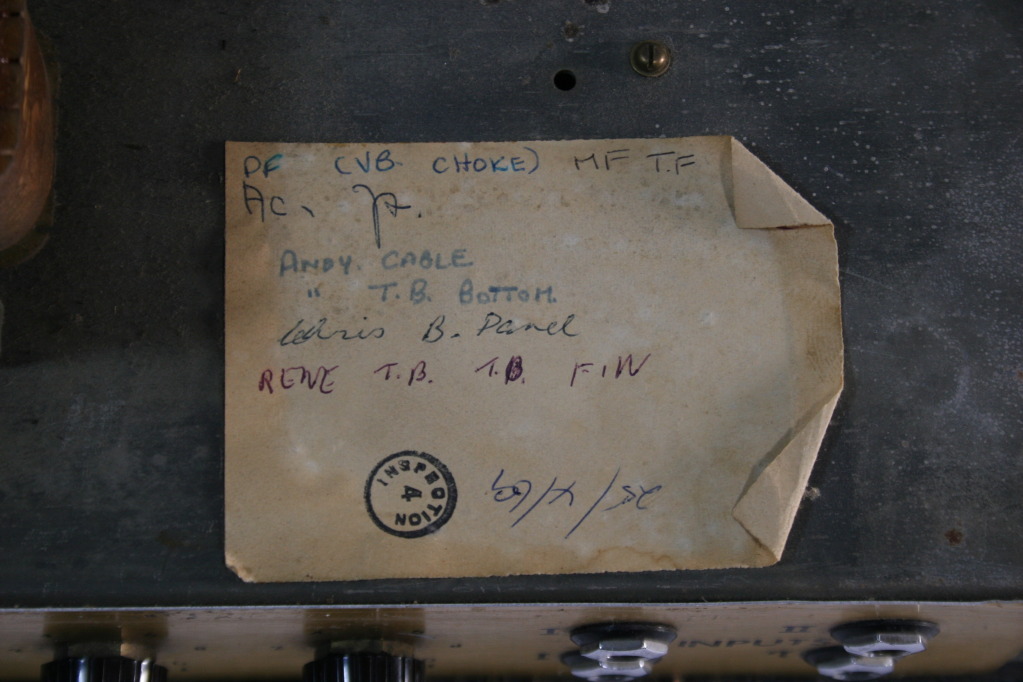 DF (VB CHOKE) MF T.F
Ac.
ANDY. CABLE
" T.B. BOTTOM.
Chris B. Panel
RENE T.B. T.B. FIN
INSPECTION
4
INPUTS
I II
I